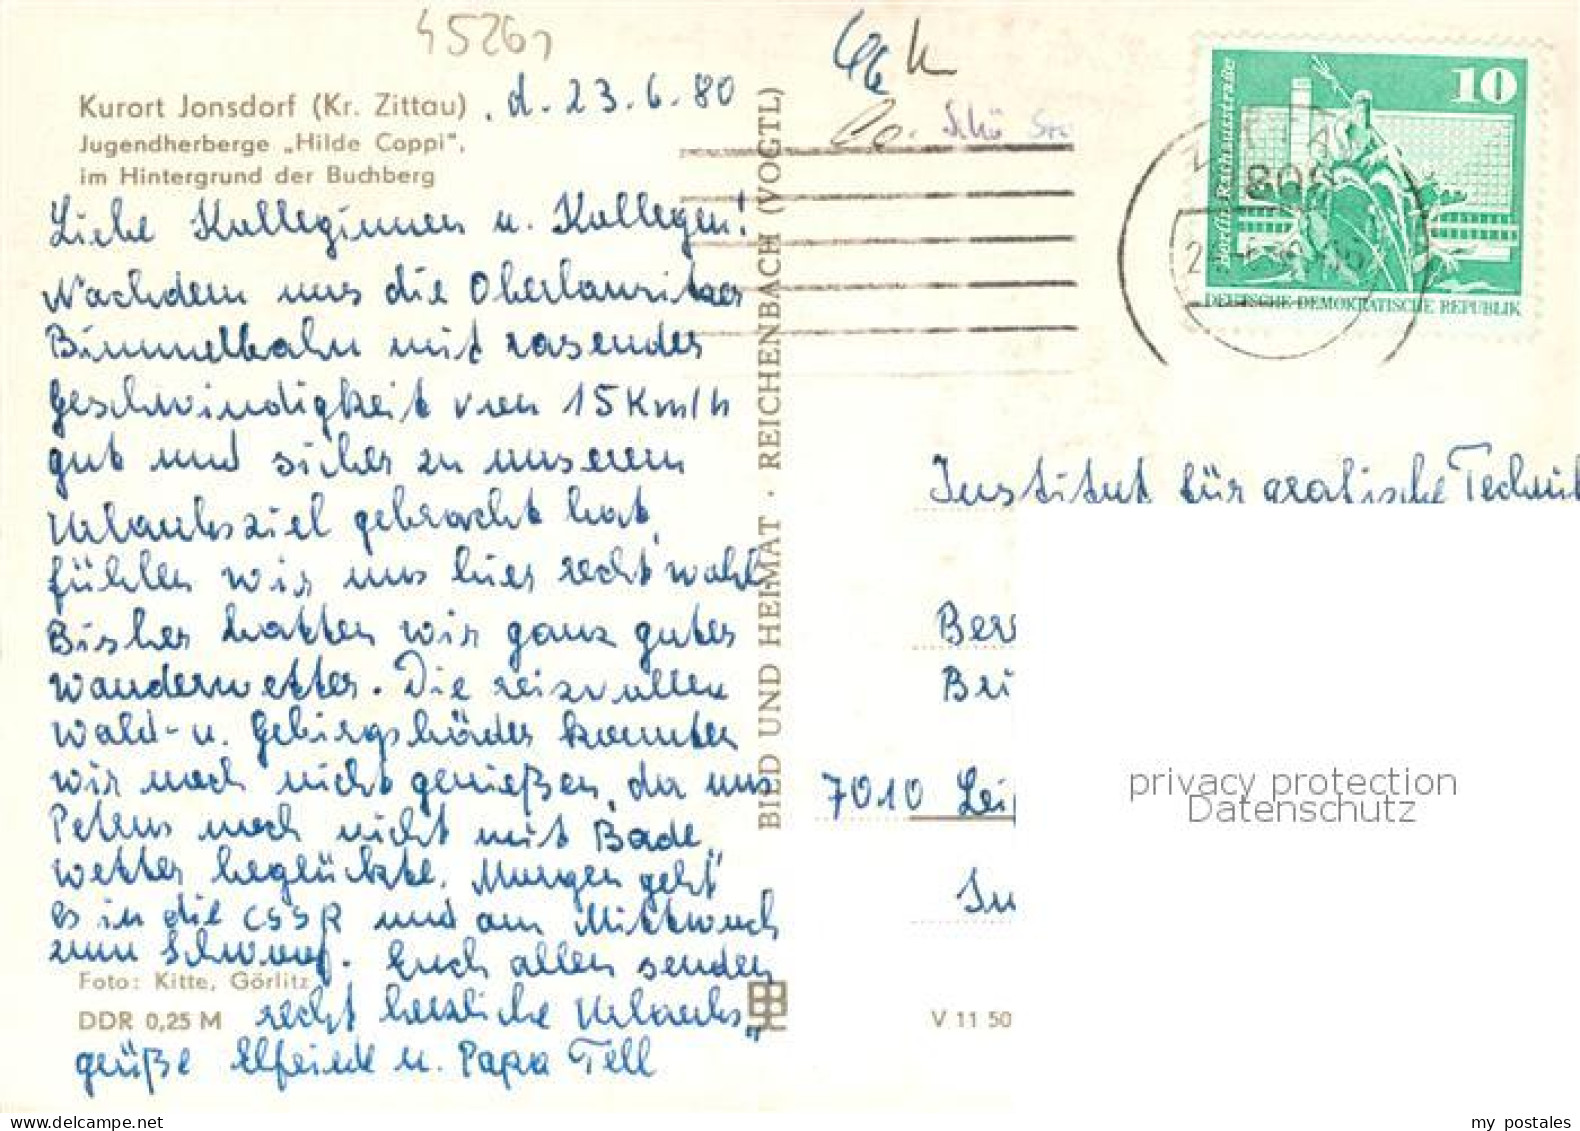 45261
Kurort Jonsdorf (Kr. Zittau)
, d. 23.6.80
Jugendherberge „Hilde Coppi",
im Hintergrund der Buchberg
Liebe Kolleginnen u. Kollegen!
Nachdem uns die Oberlausitzer
Bimmelbahn mit rasender
Geschwindigkeit von 15 Km/h
gut und sicher zu unserem
Urlaubsziel gebracht hat,
fühlen wir uns hier recht wohl.
Bisher hatten wir ganz gutes
Wanderwetter. Die reizvollen
Wald- u. Gebirgsbäder konnten
wir noch nicht genießen, da uns
Petrus noch nicht mit Bade„
wetter beglückte. Morgen geht"
es in die CSSR und am Mittwoch
zum
Foto: Kitte, Görlitz
Euch allen senden
DDR 0,25 M
recht herzliche Urlaubs„
grüße Elfriede u. Papa Tell
BILD UND HEIMAT · REICHENBACH (VOGTL)
Schö
10
Berlin, Rathausstraße
DEUTSCHE DEMOKRATISCHE REPUBLIK
Institut für grafische Technik
Ber
Bri
7010 Lei
V 11 50
privacy protection
Datenschutz
my postales